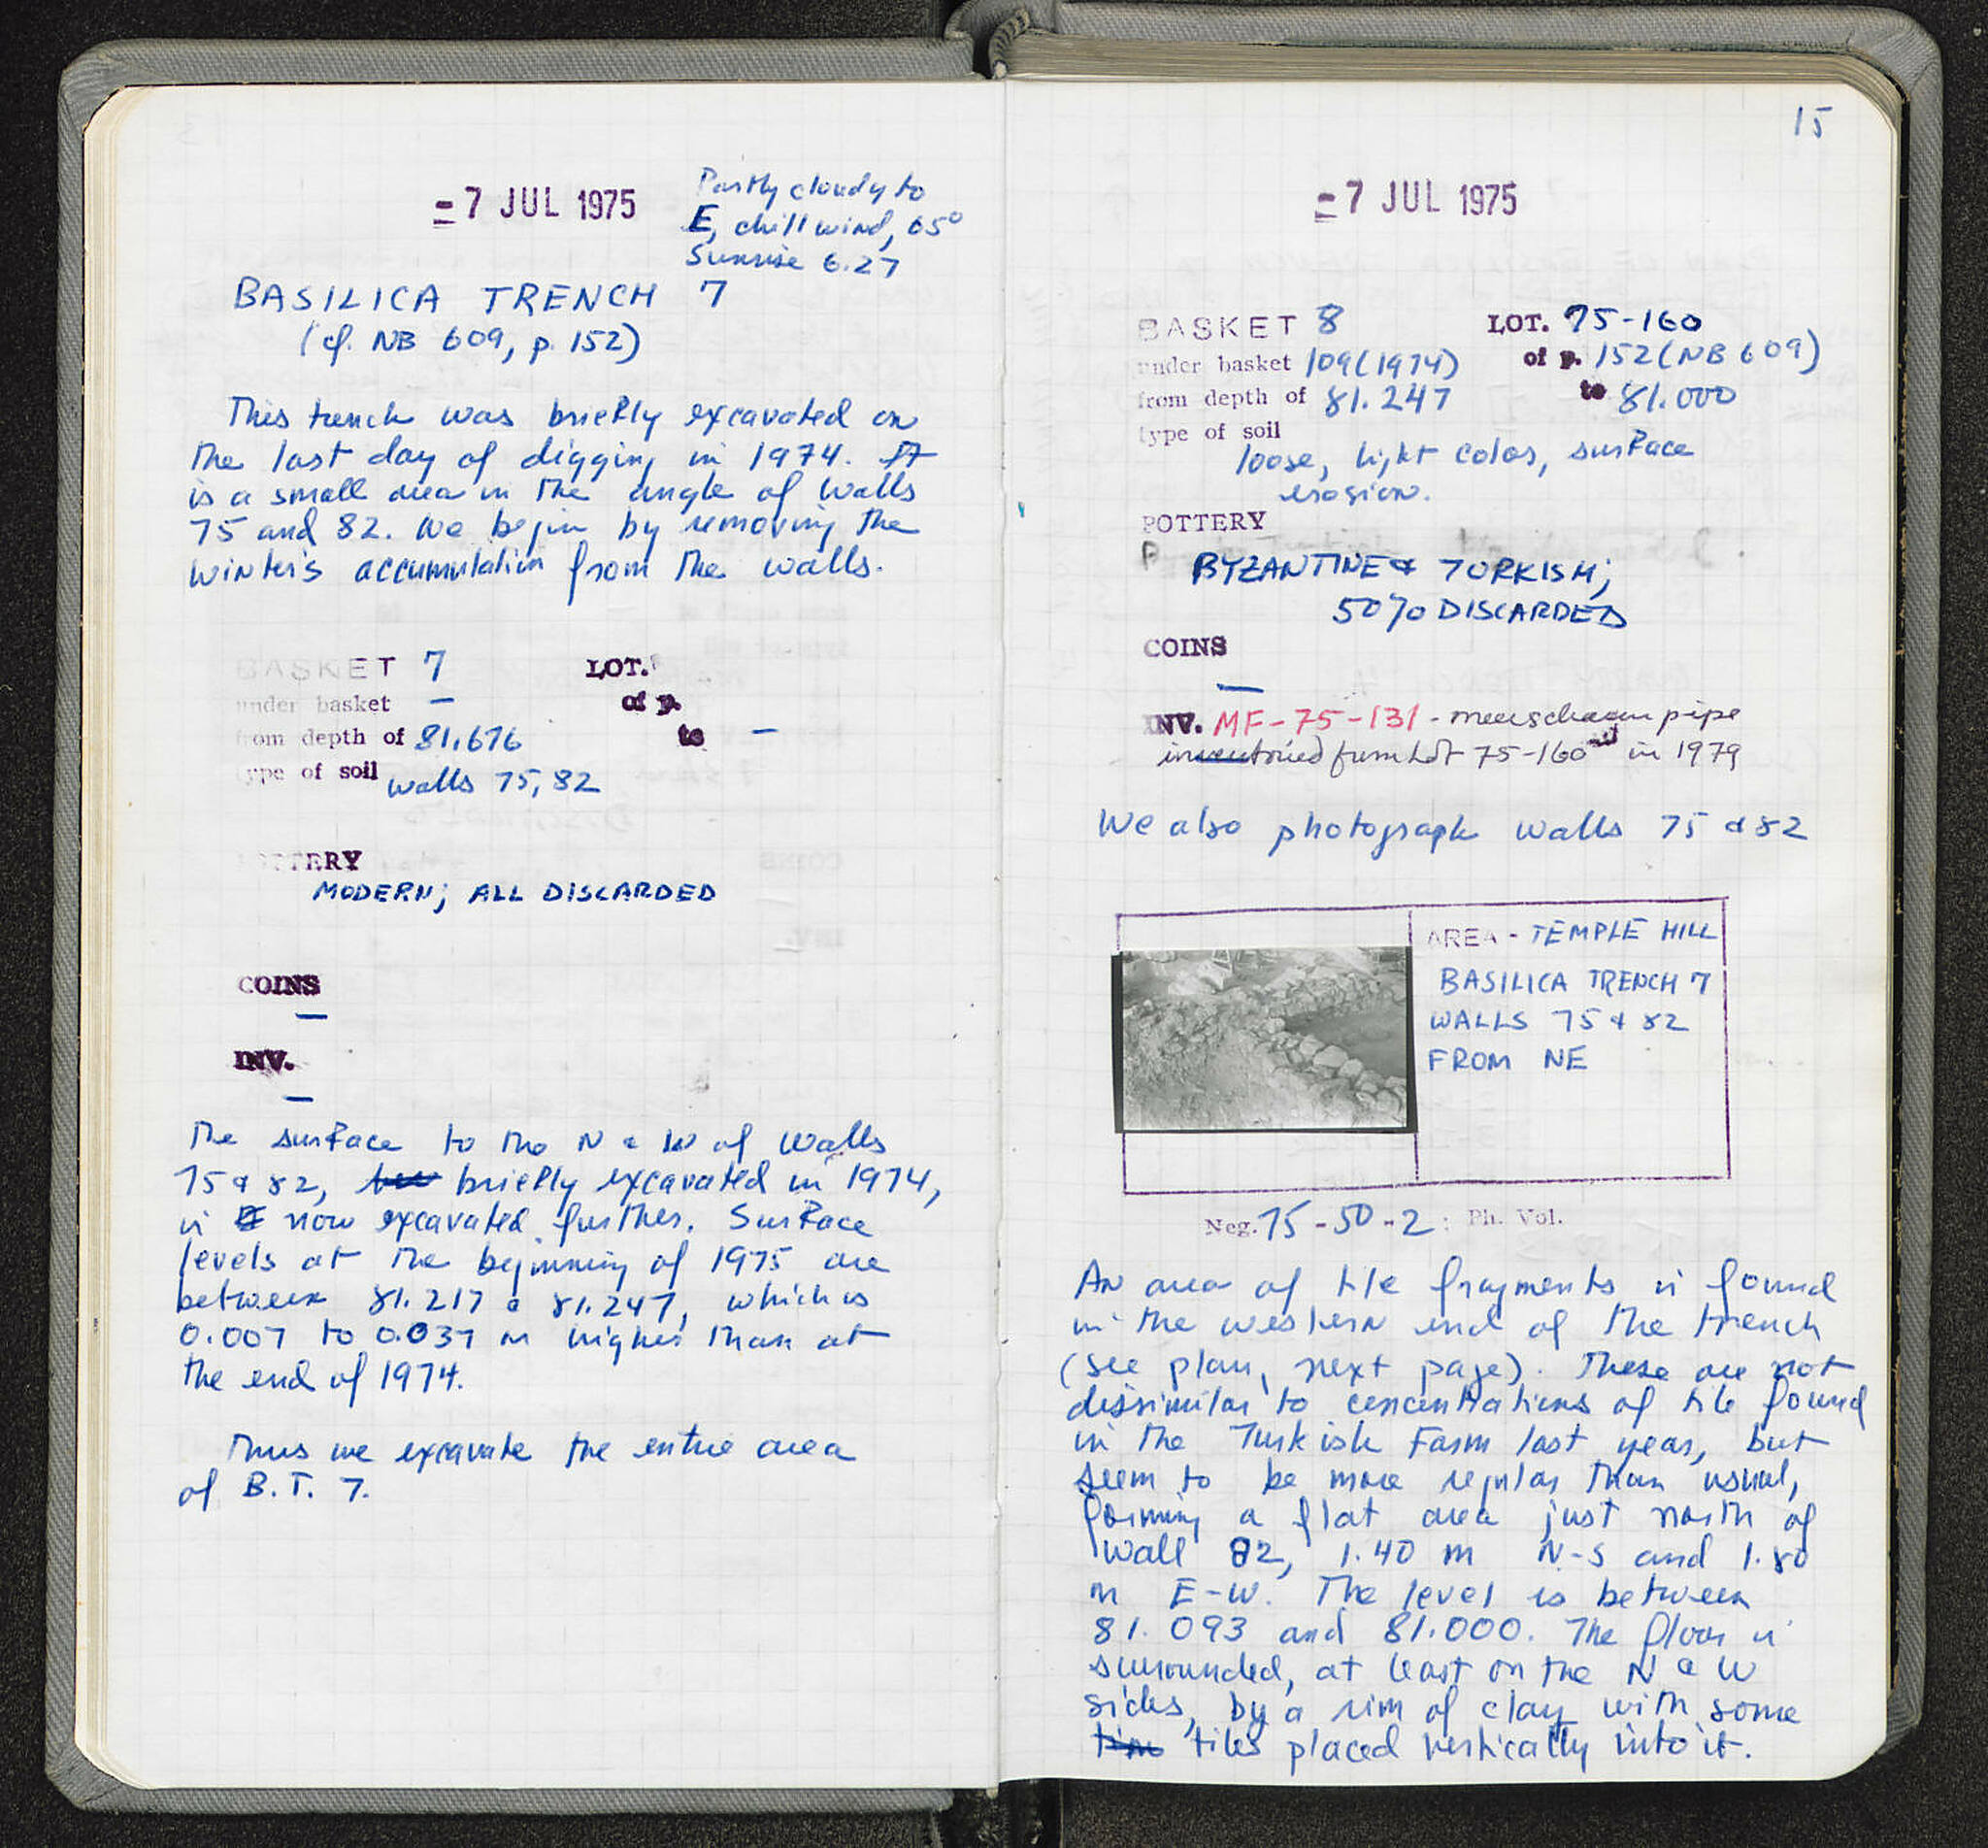 - 7 JUL 1975
Partly cloudy to
E, chill wind, 65°
Sunrise 6.27
BASILICA TRENCH 7
(cf. NB 609, p. 152)
This trench was briefly excavated on
the last day of digging in 1974. It
is a small area in the angle of walls
75 and 82. We begin by removing the
winter's accumulation from the walls.
BASKET 7 LOT.
under basket — of p.
from depth of 81.676 to —
type of soil walls 75, 82
POTTERY
MODERN; ALL DISCARDED
COINS
—
INV.
—
The surface to the N & W of walls
75 & 82, briefly excavated in 1974,
is now excavated further. Surface
levels at the beginning of 1975 are
between 81.217 & 81.247, which is
0.007 to 0.037 m higher than at
the end of 1974.
Thus we excavate the entire area
of B.T. 7.
15
- 7 JUL 1975
BASKET 8 LOT. 75-160
under basket 109(1974) of p. 152(NB 609)
from depth of 81.247 to 81.000
type of soil
loose, light color, surface
erosion.
POTTERY
BYZANTINE & TURKISH;
50% DISCARDED
COINS
—
INV. MF-75-131 - meerschaum pipe
inventoried from Lot 75-160 in 1979
We also photograph walls 75 & 82
AREA - TEMPLE HILL
BASILICA TRENCH 7
WALLS 75 & 82
FROM NE
Neg. 75-50-2 : Ph. Vol.
An area of tile fragments is found
in the western end of the trench
(see plan, next page). These are not
dissimilar to concentrations of tile found
in the Turkish Farm last year, but
seem to be more regular than usual,
forming a flat area just north of
wall 82, 1.40 m N-S and 1.80
m E-W. The level is between
81.093 and 81.000. The floor is
surrounded, at least on the N & W
sides, by a rim of clay with some
tiles placed vertically into it.